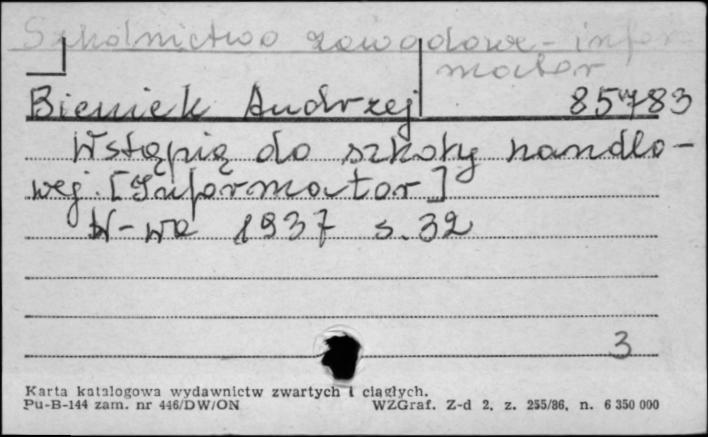 Szkolnictwo zawodowe - infor-
mator
Bieniek Andrzej 85783
Wstąpię do szkoły handlo-
wej. [Informator]
W-wa 1937 s. 32
3
Karta katalogowa wydawnictw zwartych i ciągłych.
Pu-B-144 zam. nr 446/DW/ON WZGraf. Z-d 2, z. 255/86, n. 6 350 000